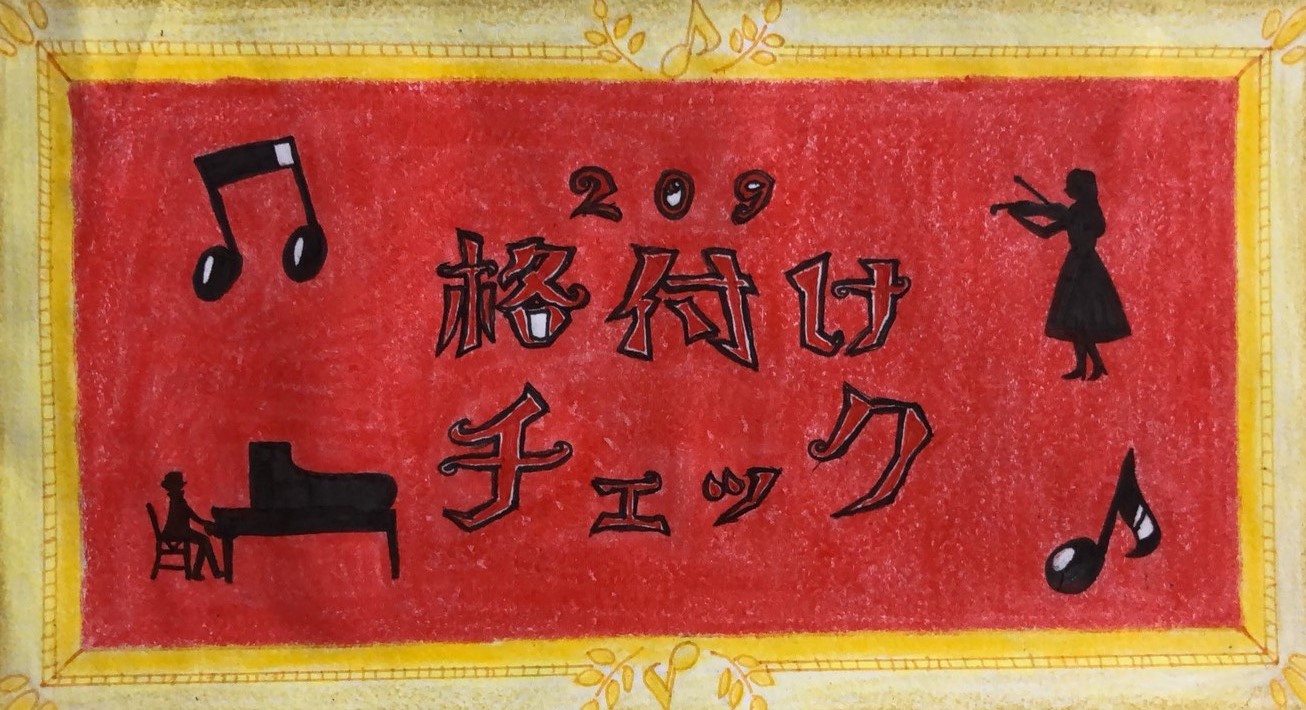 209
格付け
チェック